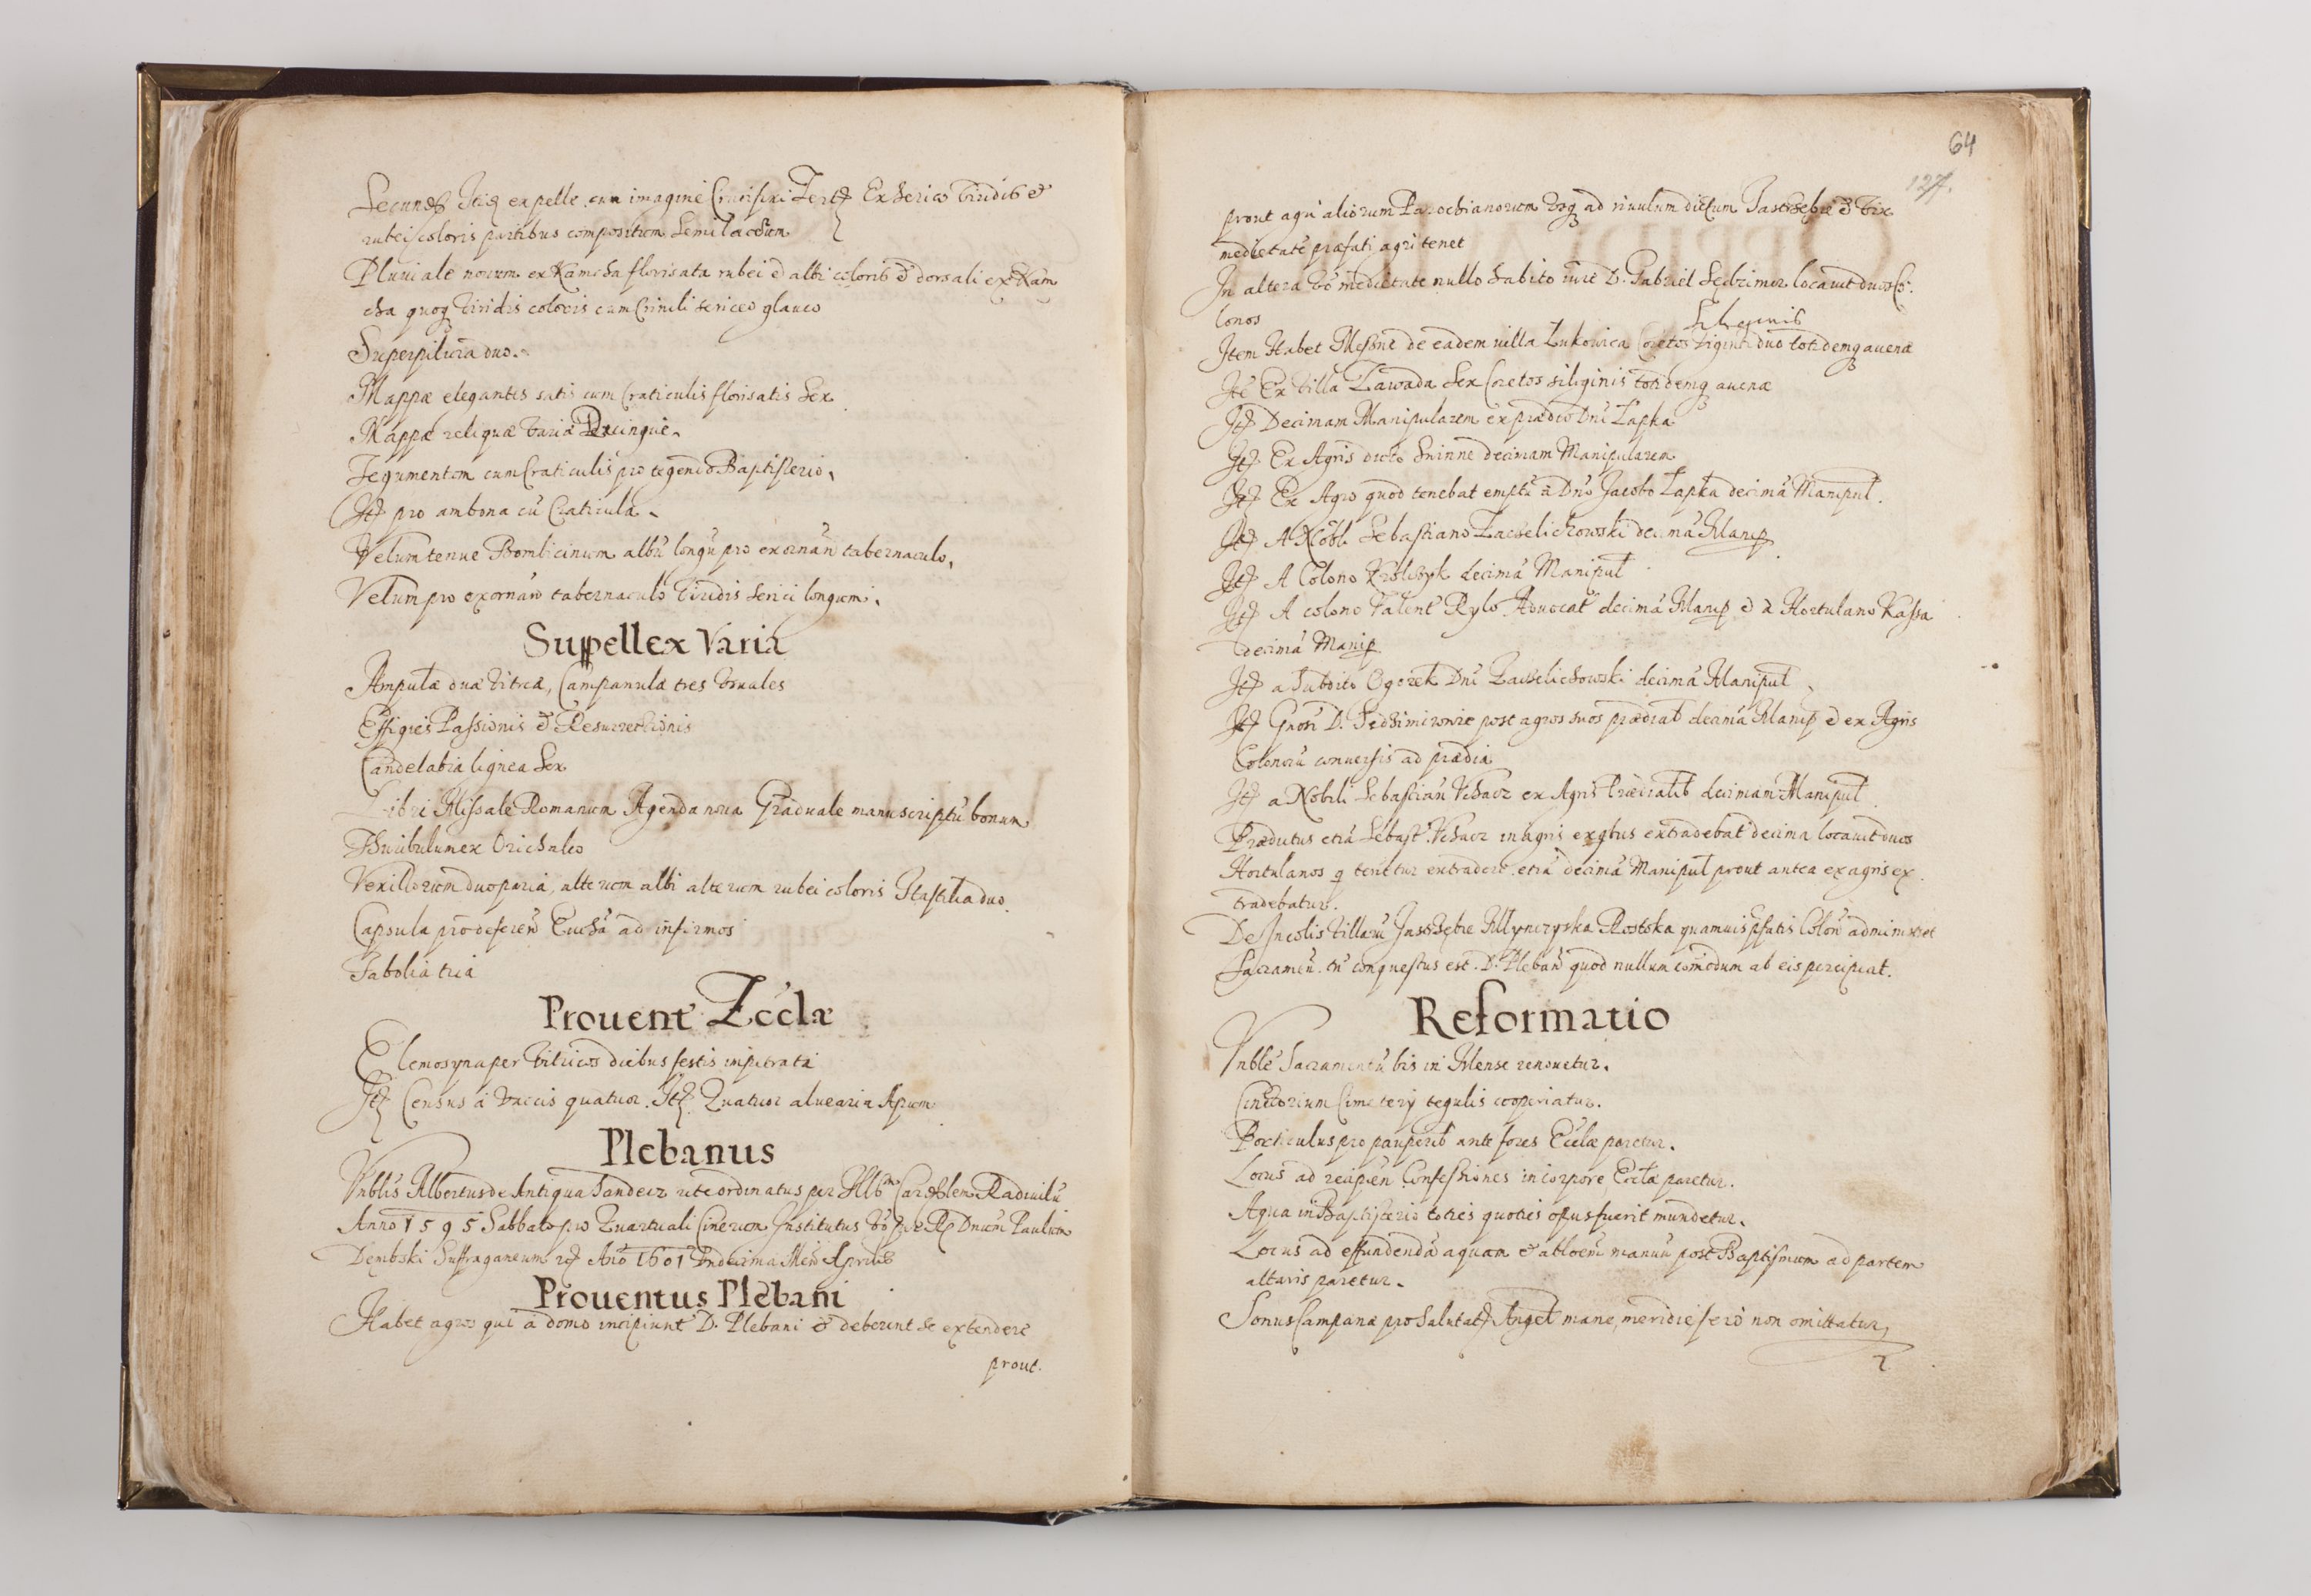 Secund Itē ex pelle cum imagine Crucifixi Tert Ex serico viridis et
rubei coloris partibus compositum Semilacerum
Pluuiale nouum ex Kamcha florisata rubei et albi coloris et dorsali ex Kam
cha quoq viridis coloris cum Crinili sericeo glauco
Superpilicia duo.
Mappæ elegantes satis cum Craticulis florisatis Sex
Mappæ reliquæ variæ
Tegumentum cum Craticulis pro tegendo Baptisterio,
It pro ambona cū Craticula.
Velum tenue Bombicinum albū longū pro exornan tabernaculo,
Velum pro exornan tabernaculo viridis serici longum.
Suppellex Varia
Ampulæ duæ vitreæ, Campanulæ tres
Effigies Passionis et Resurrectionis
Candelabra lignea Sex
Libri Missale Romanum Agenda noua Graduale manuscriptū bonum
Thuribulum ex Orichalco
Vexillorum duo paria, alterum albi alterum rubei coloris Hastilia duo.
Capsula pro deferen Eucha ad infirmos
Tabolia tria
Prouent Eccla
Elemosyna per vitricos diebus festis impetrata
It Census à vaccis quatuor. It Quatuor aluearia Apum
Plebanus
Vnblis Albertus de Antiqua Sandecz rite ordinatus per Illm Cardlem Radiuilū
Anno 1595 Sabbato pro Quartuali Cinerum Institutus vō per R Dnum Paulum
Dembski Suffraganeum Ano 1601 Vndecima Men Aprilis
Prouentus Plebani
Habet agros qui à domo incipiunt D. Plebani et deberent se extendere
prout.
64
127.
prout agri aliorum Parochianorum vsq ad riuulum dictum Jastrzebie et vix
medietatē præfati agri tenet
In altera vō medietate nullo habito iure D. Gabriel Sędzimir locauit duos Co.
lonos
Siliginis
Item Habet Mesne de eadem villa Lukowica Coretos viginti duo totidemq auenæ
Ite Ex villa Zawada Sex Coretos siliginis totidemq auenæ
It Decimam Manipularem ex prædio Dni Łapka
It Ex Agris dicto Sninne decimam Manipularem
It Ex Agro quod tenebat emptū à Dno Jacobo Łapka decimā Manipul.
It A Nobli Sebastiano Zacwelichowski decimā Manip
It A Colono Krolczyk decimā Manipul
It A colono Valent Rylo Aduocat decimā Manip et à Hortulano Kassa
decimā Manip
It a Subdito Ogorek Dni Zacwelichowski decimā Manipul
It Gnosi D. Sedzimirowie post agros suos prædial decimā Manip et ex Agris
Colonorū conuersis ad prædia
It a Nobili Sebastian Vchacz ex Agris Prædialib decimam Manipul
Prædictus etiā Sebast Vchacz in agris ex qbus extradebat decimā locauit duos
Hortulanos q tenētur extradere etiā decimā Manipul prout antea ex agris ex
tradebatur.
De Incolis villarū Jastrzębie Mlynczyska Rostoka quamuis pfatis Colon administret
Sacramen. tn conquestus est D. Pleban quod nullum comodum ab eis percipiat.
Reformatio
Vnble Sacramentū bis in Mense renouetur.
Cimetery tegulis cooperiatur.
Porticulus pro pauperib ante fores Ecclæ paretur.
Locus ad recipien Confessiones in corpore Ecclæ paretur.
Aqua in Baptisterio toties quoties opus fuerit mundetur.
Locus ad effundendā aquam et abloen manuū post Baptismum ad partem
altaris paretur.
Sonus Campanæ pro Salutat Angel mane, meridie sero non omittatur,
2